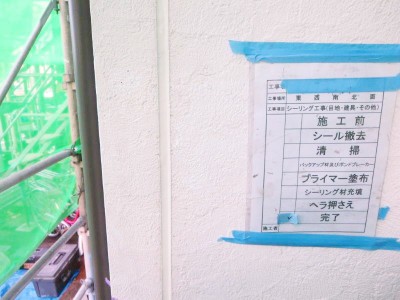 工事
工事場所 東西南北面
工事項目 シーリング工事(目地・建具・その他)
施工前
シール撤去
清掃
バックアップ材又はボンドブレーカー
プライマー塗布
シーリング材充填
ヘラ押さえ
完了
施工者